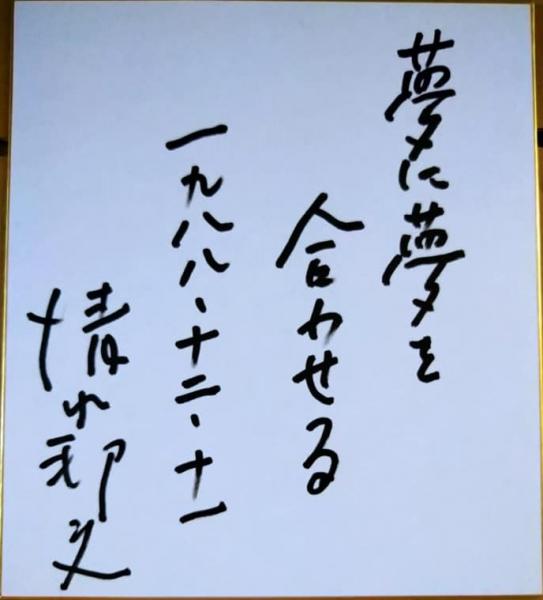 夢に夢を
合わせる
一九八八、十二、十一
清水邦夫